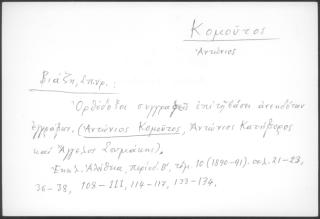 Κομοῦτος
Ἀντώνιος
Βιάζη, Σπυρ. :
Ὀρθόδοξοι συγγραφεῖς ἐπὶ τῇ βάσει ἀνεκδότων
ἐγγράφων. (Ἀντώνιος Κομοῦτος, Ἀντώνιος Κατήφορος
καὶ Ἄγγελος Σουμάκης).
Ἐκκλ. Ἀλήθεια, περίοδ. Β', τόμ. 10 (1890-91). σελ. 21-23,
36-38, 108-111, 114-117, 133-134.